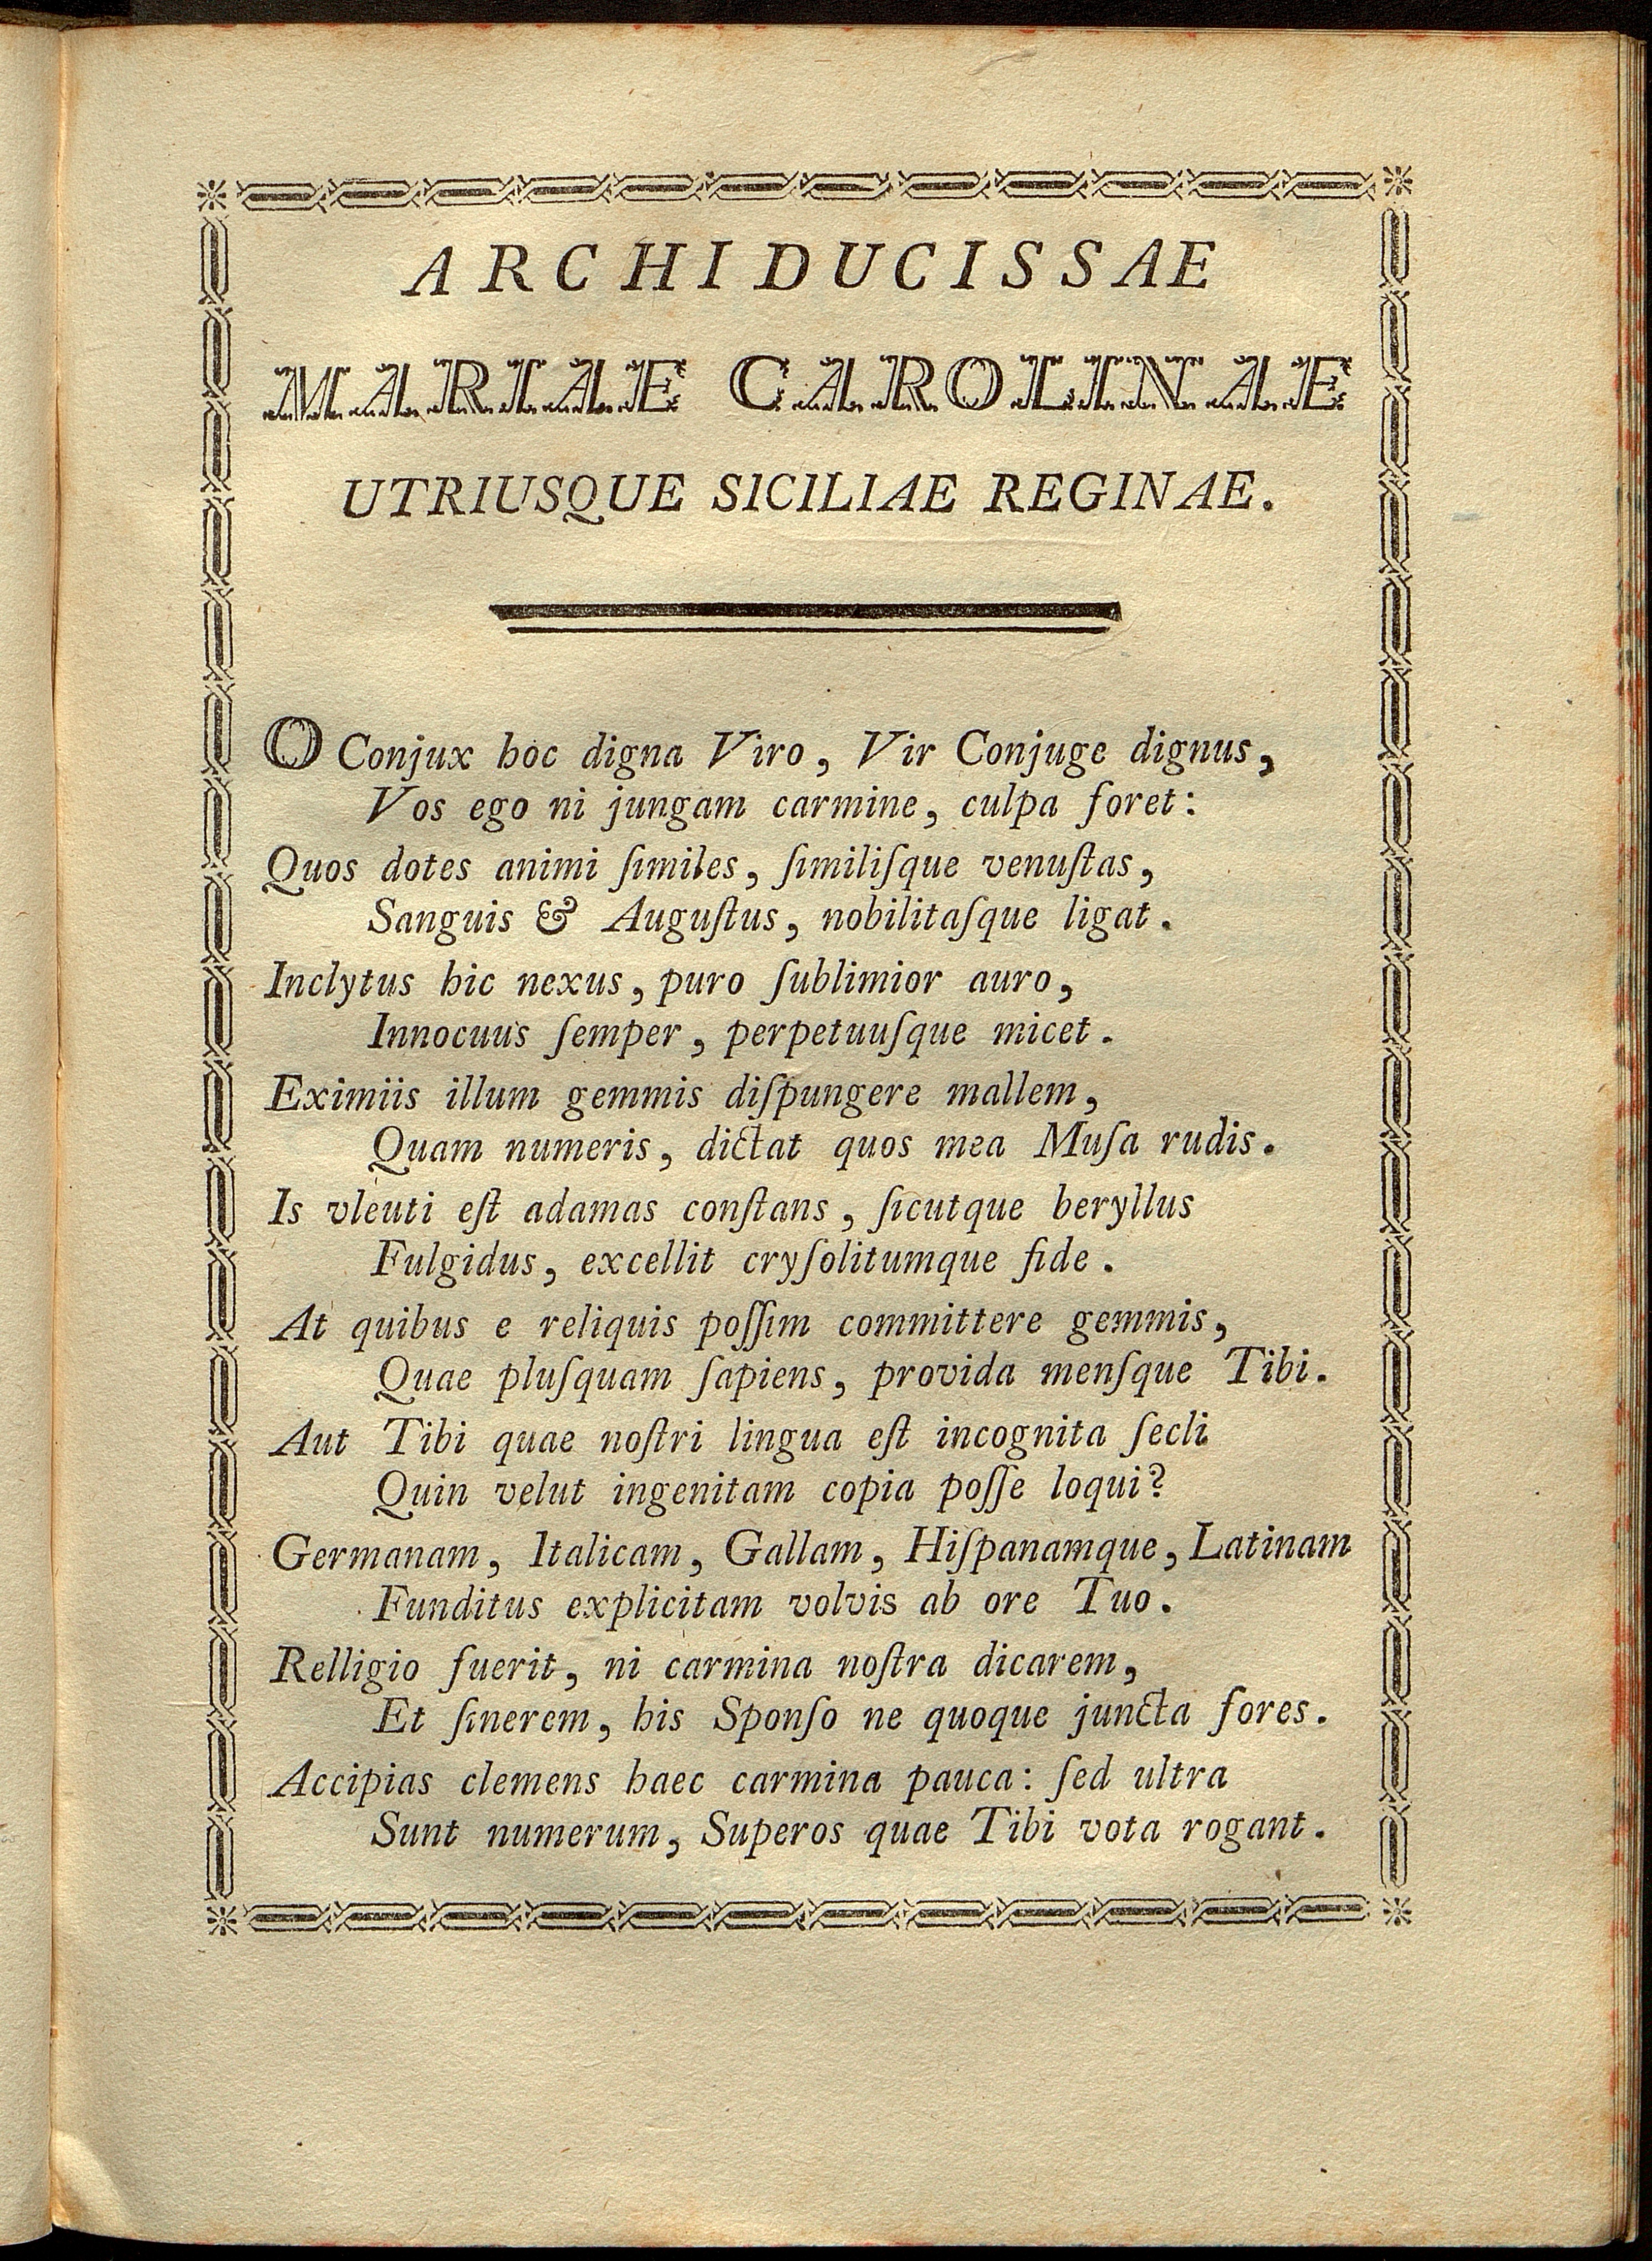 ARCHIDUCISSAE
MARIAE CAROLINAE
UTRIUSQUE SICILIAE REGINAE.
O Conjux hoc digna Viro, Vir Conjuge dignus,
Vos ego ni jungam carmine, culpa foret:
Quos dotes animi ſimiles, ſimiliſque venuſtas,
Sanguis & Auguſtus, nobilitaſque ligat.
Inclytus hic nexus, puro ſublimior auro,
Innocuus ſemper, perpetuuſque micet.
Eximiis illum gemmis diſpungere mallem,
Quam numeris, dictat quos mea Muſa rudis.
Is vleuti eſt adamas conſtans, ſicutque beryllus
Fulgidus, excellit cryſolitumque fide.
At quibus e reliquis poſſim committere gemmis,
Quae pluſquam ſapiens, provida menſque Tibi.
Aut Tibi quae noſtri lingua eſt incognita ſecli
Quin velut ingenitam copia poſſe loqui?
Germanam, Italicam, Gallam, Hiſpanamque, Latinam
Funditus explicitam volvis ab ore Tuo.
Relligio fuerit, ni carmina noſtra dicarem,
Et ſinerem, his Sponſo ne quoque juncta fores.
Accipias clemens haec carmina pauca: ſed ultra
Sunt numerum, Superos quae Tibi vota rogant.